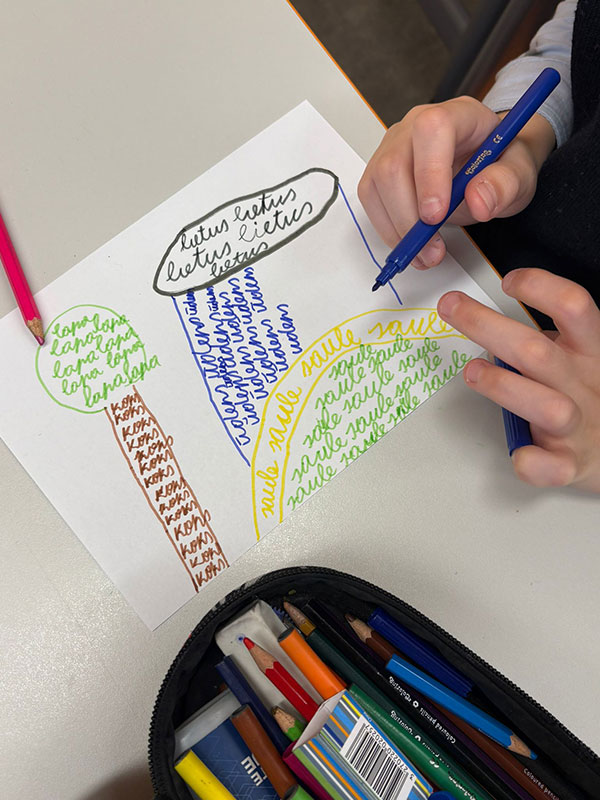 lietus lietus
lietus lietus
lietus
lapa lapa
lapa lapa
lapa lapa
lapa lapa
lapa lapa
koks
koks
koks
koks
koks
koks
koks
koks
koks
koks
koks
koks
koks
ūdens ūdens ūdens
ūdens ūdens ūdens
ūdens ūdens ūdens
ūdens ūdens
ūdens
saule saule saule saule
saule
saule saule
saule saule saule
saule saule saule
saule saule saule saule
Coloring
CE
Coloured pencils